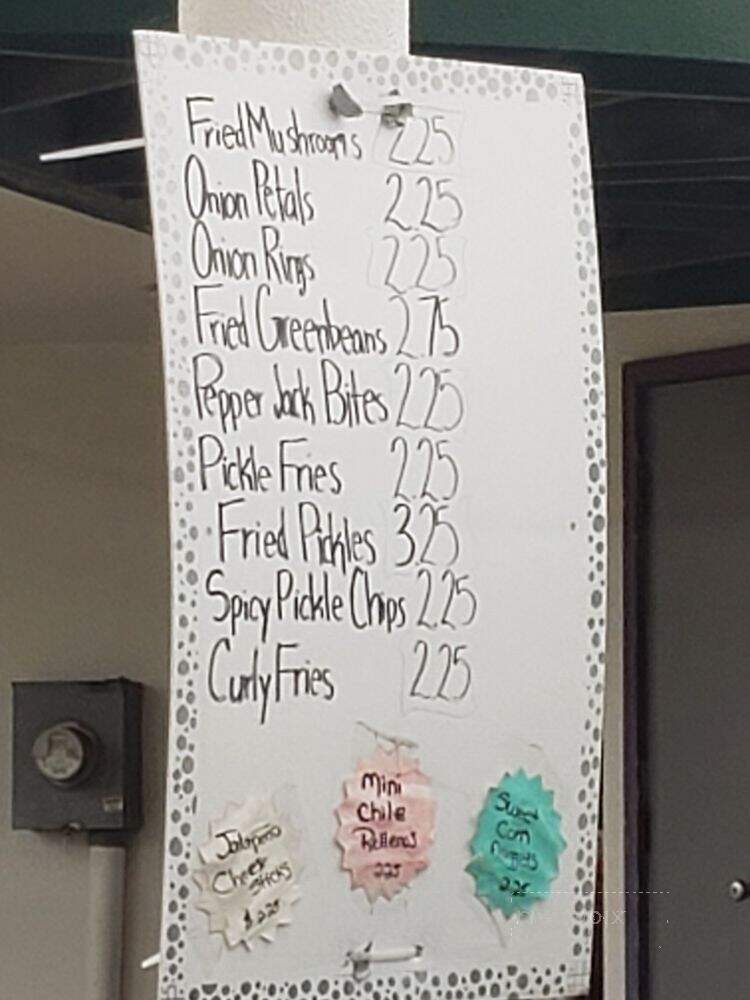 Fried Mushrooms 2.25
Onion Petals 2.25
Onion Rings 2.25
Fried Greenbeans 2.75
Pepper Jack Bites 2.25
Pickle Fries 2.25
Fried Pickles 3.25
Spicy Pickle Chips 2.25
Curly Fries 2.25
Jalapeno
Cheese Sticks
$2.25
Mini
Chile
Rellenos
2.25
Corn
Nuggets
2.25